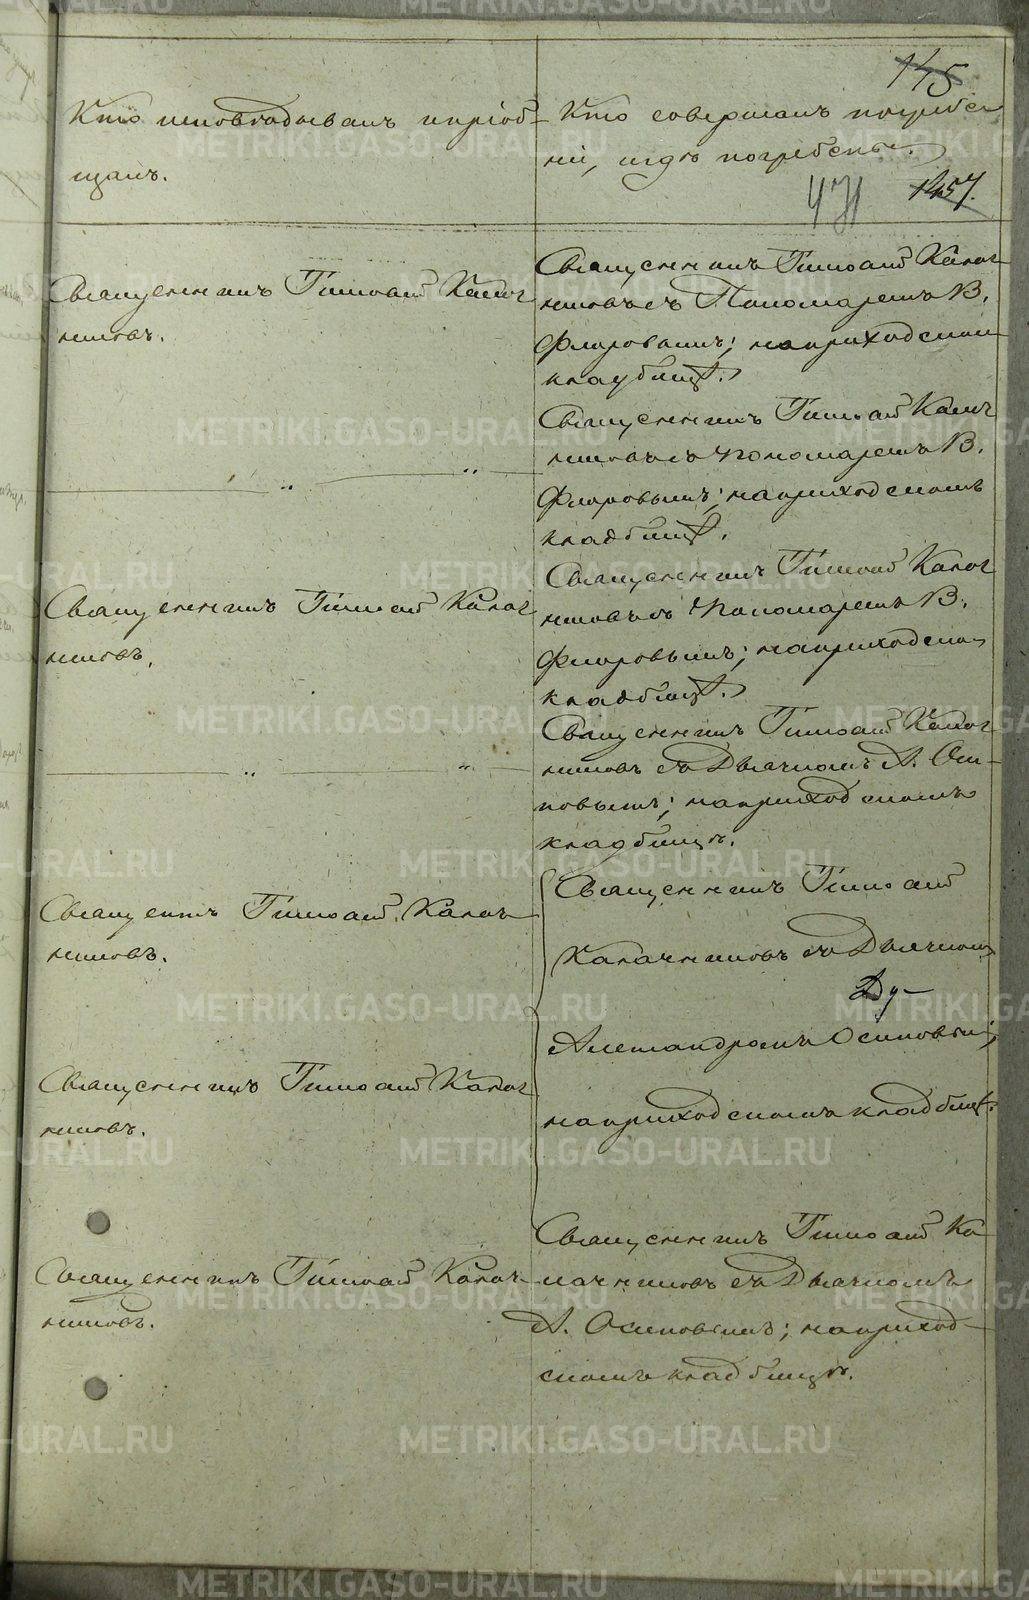 145
Кто исповѣдывалъ и пріоб-
щалъ.
Кто совершалъ погребе-
ніе, и гдѣ погребены.
471
1457.
Священникъ Тимоѳей Калач-
никовъ.
Священникъ Тимоѳей Калач-
никовъ съ Пономаремъ В.
Флоровымъ; на приходскомъ
кладбищѣ.
— „ — „ —
Священникъ Тимоѳей Калач-
никовъ съ пономаремъ В.
Флоровымъ; на приходскомъ
кладбищѣ.
Священникъ Тимоѳей Калач-
никовъ.
Священникъ Тимоѳей Калач-
никовъ съ Пономаремъ В.
Флоровымъ; на приходско-
кладбищѣ.
— „ — „ —
Священникъ Тимоѳей Калач-
никовъ съ Дьячкомъ А. Оси-
повымъ; на приходскомъ
кладбищѣ.
Священикъ Тимоѳей Калач-
никовъ.
Священникъ Тимоѳей Калач-
никовъ.
Священникъ Тимоѳей
Калачниковъ съ Дьячкомъ
Александромъ Осиповымъ;
на приходскомъ кладбищѣ.
Священникъ Тимоѳей Калач-
никовъ.
Священникъ Тимоѳей Ка-
лачниковъ съ Дьячкомъ
А. Осиповымъ; на приход-
скомъ кладбищѣ.
METRIKI.GASO-URAL.RU